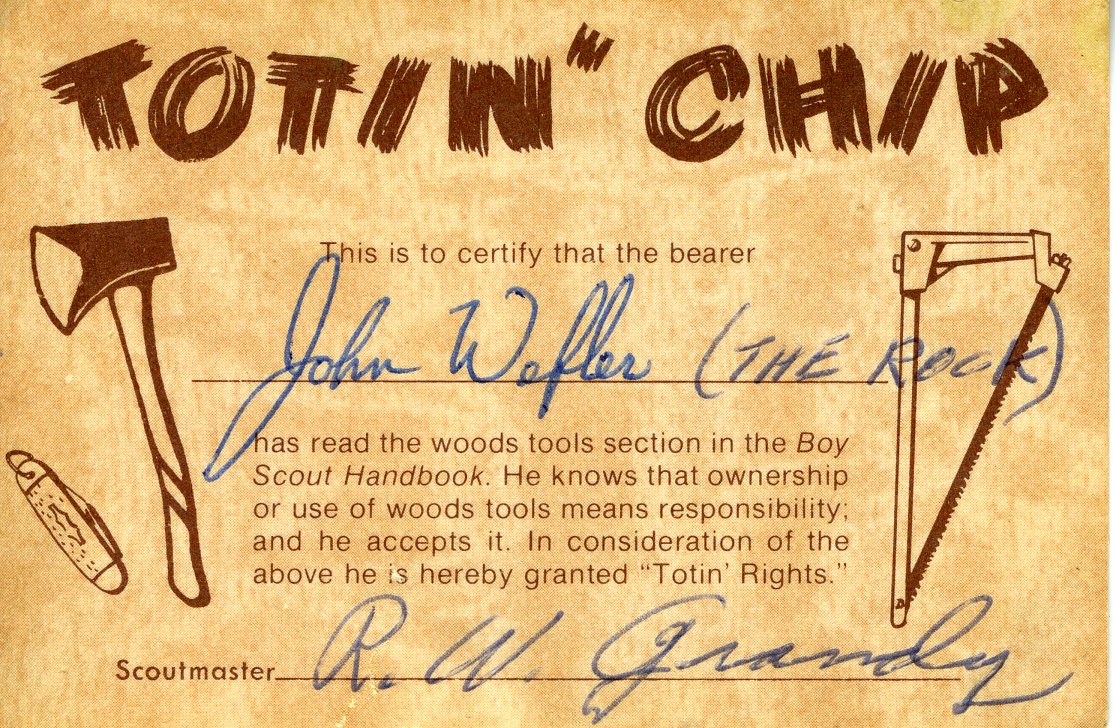 TOTIN' CHIP
This is to certify that the bearer
John Wefler (THE ROCK)
has read the woods tools section in the Boy
Scout Handbook. He knows that ownership
or use of woods tools means responsibility;
and he accepts it. In consideration of the
above he is hereby granted “Totin’ Rights.”
Scoutmaster R. W. Grandy